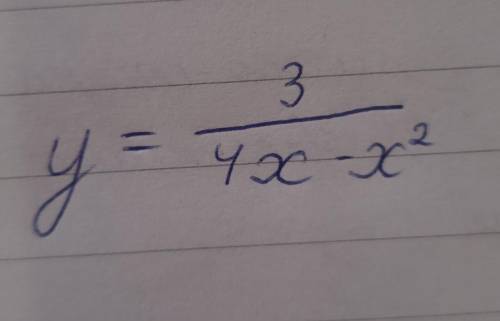 y = 3 / (4x - x²)